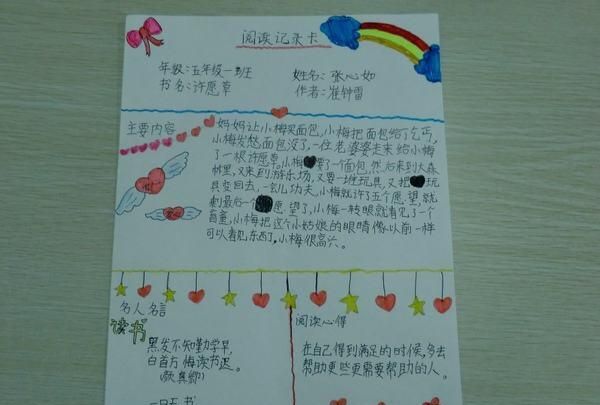 阅读记录卡
年级：五年级一班
姓名：张心如
书名：许愿草
作者：崔钟雷
主要内容
妈妈让小梅买面包，小梅把面包给了乞丐，
小梅发愁面包没了，一位老婆婆走来给小梅
了一根许愿草。小梅要了一个面包，然后来到大森
林里，又来到游乐场，又要一班玩具，又把玩
具变回去，一会儿功夫，小梅就许了五个愿望，就
剩最后一个愿望了，小梅一转眼就看见了一个
盲童，小梅把这个小姑娘的眼睛像以前一样
可以看见东西了，小梅很高兴。
名人名言
读书
黑发不知勤学早，
白首方悔读书迟。
(颜真卿)
阅读心得
在自己得到满足的时候，多去
帮助更些更需要帮助的人。